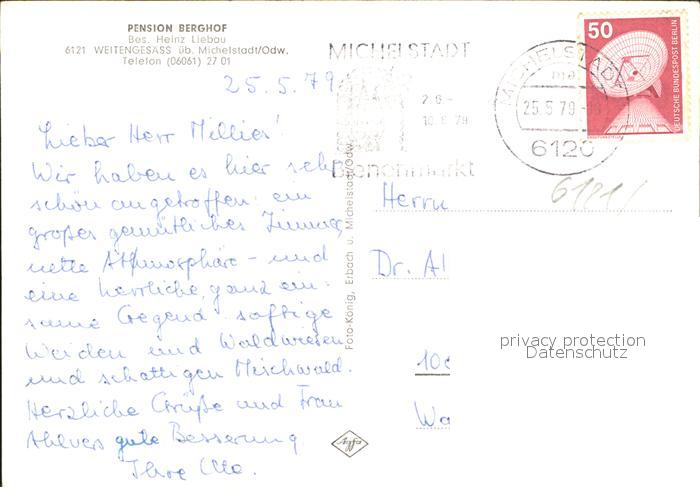 PENSION BERGHOF
Bes. Heinz Liebau
6121 WEITENGESASS üb. Michelstadt/Odw.
Telefon (06061) 27 01
25.5.79
Lieber Herr Millies!
Wir haben es hier sehr
schön angetroffen: ein
großes gemütliches Zimmer,
nette Athmosphäre - und
eine herrliche, ganz ein-
same Gegend: saftige
Weiden und Waldwiesen
und schattigen Mischwald.
Herzliche Grüße und Frau
Ahlvers gute Besserung
Ihre
Foto-König, Erbach u. Michelstadt/Odw.
MICHELSTADT
2.6.-
10.6.79
Bienenmarkt
MICHELSTADT
25.5.79
6120
50
DEUTSCHE BUNDESPOST BERLIN
6121/
Herrn
Dr. Al
10
Wa
privacy protection
Datenschutz
Agfa